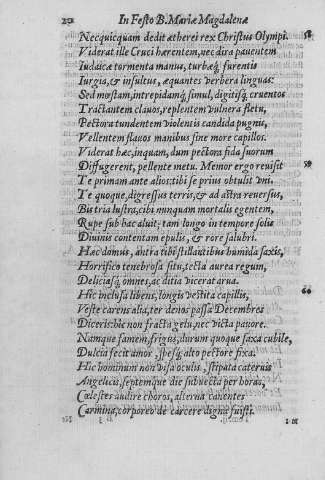 252 In Festo B. Mariæ Magdalenæ
Necquicquam dedit ætherei rex Christus Olympi. 58
Viderat ille Cruci hærentem, nec dira pauentem
Iudaicæ tormenta manus, turbæq́; furentis
Iurgia, & insultus, æquantes verbera linguas:
Sed mœstam, intrepidamq́; simul, digitisq́; cruentos
Tractantem clauos, replentem vulnera fletu,
Pectora tundentem violentis candida pugnis,
Vellentem flauos manibus sine more capillos.
Viderat hæc, inquam, dum pectora fida suorum
Diffugerent, pellente metu. Memor ergo reuisit 59
Te primam ante alios: tibi se prius obtulit vni.
Te quoque, digressus terris, & ad astra reuersus,
Bis tria lustra, cibi nunquam mortalis egentem,
Rupe sub hac aluit, tam longo in tempore solis
Diuinis contentam epulis, & rore salubri.
Hæc domus, antra tibi stillantibus humida saxis,
Horrifico tenebrosa situ, tecta aurea regum,
Deliciasq́; omnes, ac ditia vicerat arua.
Hic inclusa libens, longis vestita capillis, 60
Veste carens alia, ter denos passa Decembres
Diceris: hic non fracta gelu, nec victa pauore.
Namque famem, frigus, durum quoque saxa cubile,
Dulcia fecit amor, spesq́; alto pectore fixa.
Hic hominum non visa oculis, stipata cateruis
Angelicis, septemque die subuecta per horas,
Cœlestes audire choros, alterna canentes
Carmina, corporeo de carcere digna fuisti.